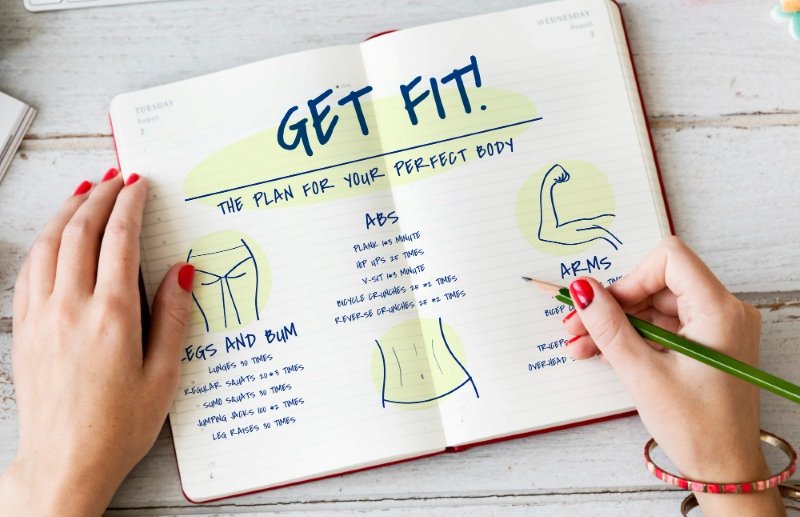 TUESDAY
August
2
WEDNESDAY
August
3
GET FIT!
THE PLAN FOR YOUR PERFECT BODY
ABS
PLANK 1*3 MINUTE
HIP UPS 25 TIMES
V-SIT 1*3 MINUTE
BICYCLE CRUNCHES 24 *2 TIMES
REVERSE CRUNCHES 25 *2 TIMES
LEGS AND BUM
LUNGES 30 TIMES
REGULAR SQUATS 20*3 TIMES
SUMO SQUATS 30 TIMES
JUMPING JACKS 100 *2 TIMES
LEG RAISES 30 TIMES
ARMS
BICEP
TRICEPS
OVERHEAD